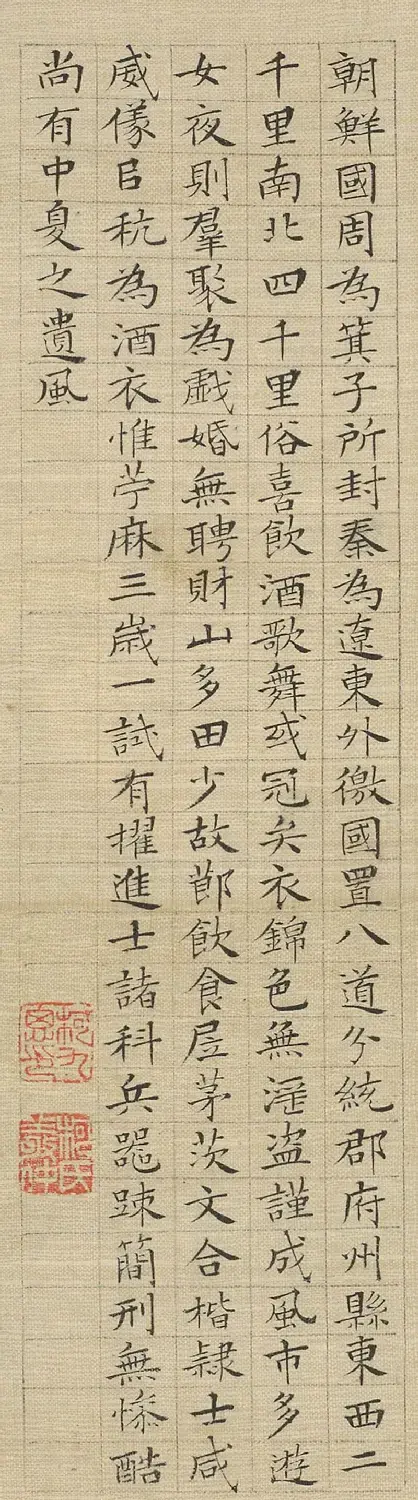 朝鮮國周為箕子所封秦為遼東外徼國置八道分統郡府州縣東西二
千里南北四千里俗喜飲酒歌舞或冠弁衣錦色無淫盗謹成風市多遊
女夜則羣聚為戲婚無聘財山多田少故節飲食居茅茨文合楷隸士咸
威儀㠯秔為酒衣惟苧麻三歲一試有擢進士諸科兵器踈簡刑無慘酷
尚有中夏之遺風
柯九思印